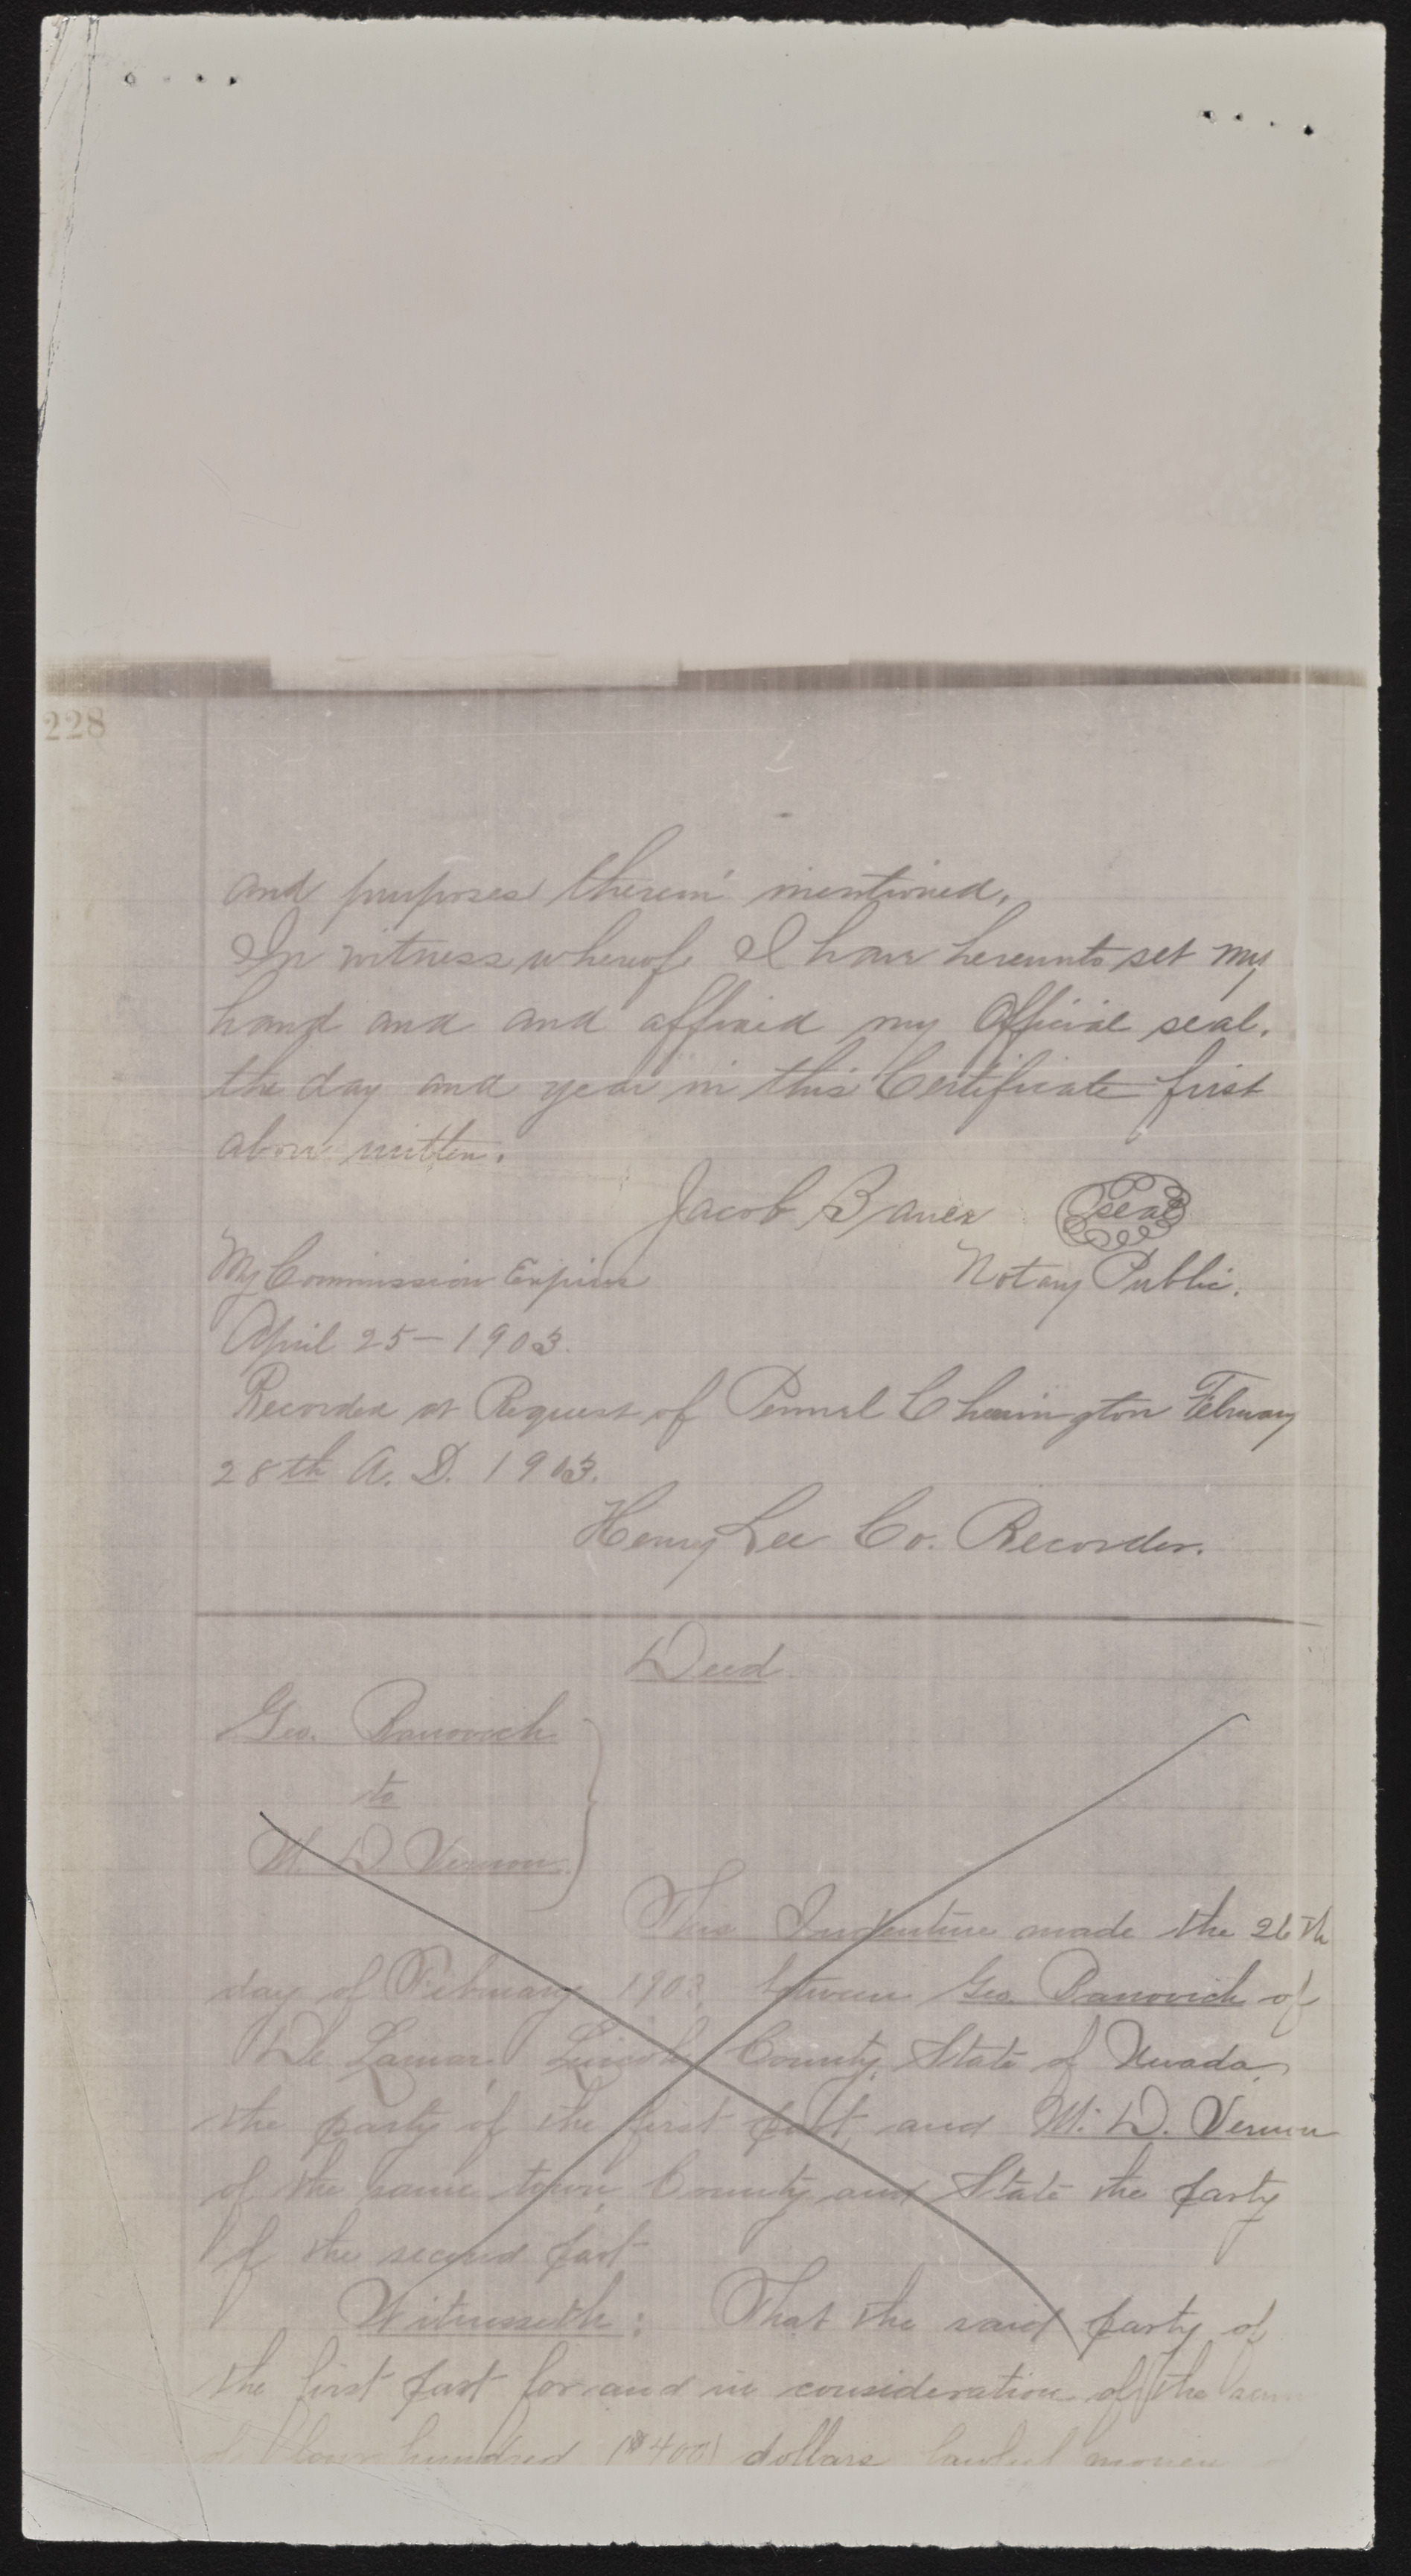 228
and purposes therein mentioned,
In witness whereof, I have hereunto set my
hand and and affixed my Official seal.
the day and year in this Certificate first
above written.
Jacob Bauer seal
My Commission Expires Notary Public.
April 25 - 1903.
Recorded at Request of Pennel Cherington February
28th A. D. 1903.
Henry Lee Co. Recorder.
Deed
Geo. Banovich
to
W. D. Vernon
This Indenture made the 26th
day of February 1903, between Geo. Banovich of
De Lamar, Lincoln County, State of Nevada,
the party of the first part, and W. D. Vernon
of the same town, County and State the party
of the second part
Witnesseth: That the said party of
the first part for and in consideration of the sum
of four hundred ($400) dollars lawful money